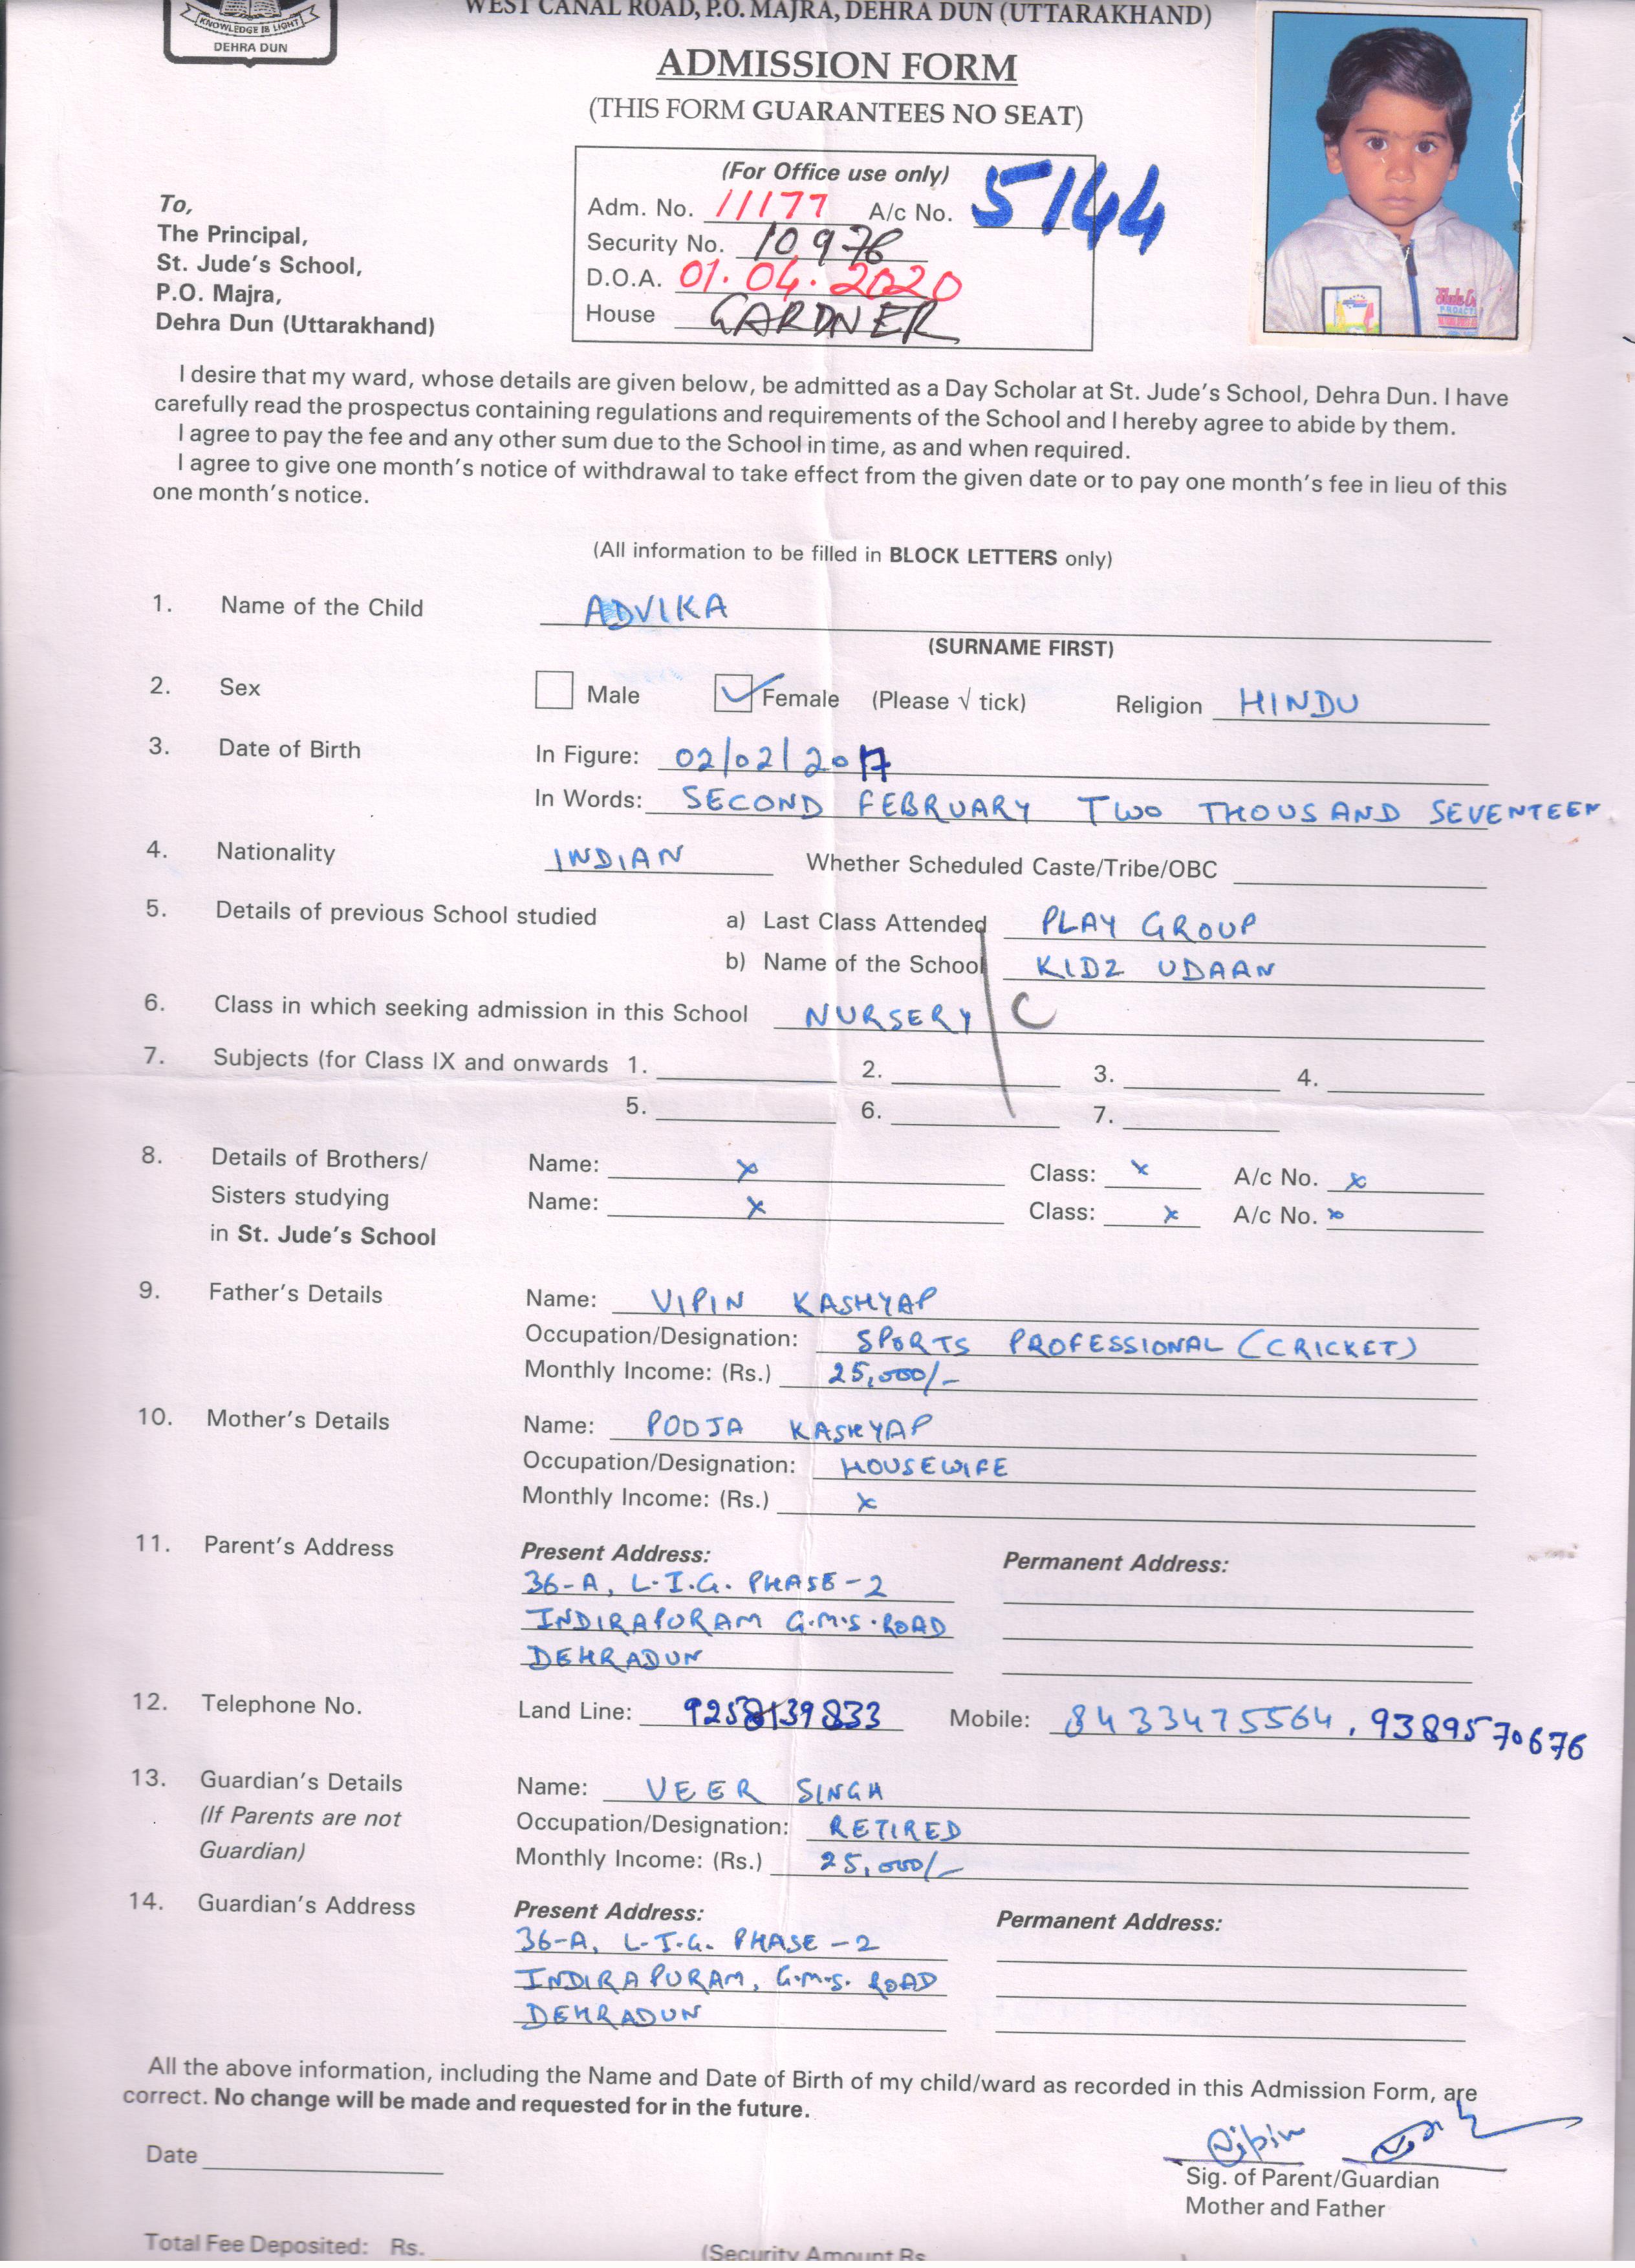 WEST CANAL ROAD, P.O. MAJRA, DEHRA DUN (UTTARAKHAND)
KNOWLEDGE IS LIGHT
DEHRA DUN
ADMISSION FORM
(THIS FORM GUARANTEES NO SEAT)
(For Office use only)
Adm. No. 11177 A/c No. 5144
Security No. 10976
D.O.A. 01.04.2020
House GARDNER
To,
The Principal,
St. Jude's School,
P.O. Majra,
Dehra Dun (Uttarakhand)
I desire that my ward, whose details are given below, be admitted as a Day Scholar at St. Jude's School, Dehra Dun. I have
carefully read the prospectus containing regulations and requirements of the School and I hereby agree to abide by them.
I agree to pay the fee and any other sum due to the School in time, as and when required.
I agree to give one month's notice of withdrawal to take effect from the given date or to pay one month's fee in lieu of this
one month's notice.
(All information to be filled in BLOCK LETTERS only)
1. Name of the Child ADVIKA
(SURNAME FIRST)
2. Sex Male ✓ Female (Please √ tick) Religion HINDU
3. Date of Birth In Figure: 02/02/2017
In Words: SECOND FEBRUARY TWO THOUSAND SEVENTEEN
4. Nationality INDIAN Whether Scheduled Caste/Tribe/OBC
5. Details of previous School studied a) Last Class Attended PLAY GROUP
b) Name of the School KIDZ UDAAN
6. Class in which seeking admission in this School NURSERY / C
7. Subjects (for Class IX and onwards 1. 2. 3. 4.
5. 6. 7.
8. Details of Brothers/ Name: x Class: x A/c No. x
Sisters studying Name: x Class: x A/c No. x
in St. Jude's School
9. Father's Details Name: VIPIN KASHYAP
Occupation/Designation: SPORTS PROFESSIONAL (CRICKET)
Monthly Income: (Rs.) 25,000/-
10. Mother's Details Name: POOJA KASHYAP
Occupation/Designation: HOUSEWIFE
Monthly Income: (Rs.) x
11. Parent's Address Present Address: Permanent Address:
36-A, L.I.G. PHASE-2
INDIRAPURAM G.M.S. ROAD
DEHRADUN
12. Telephone No. Land Line: 9258139833 Mobile: 8433475564, 9389570676
13. Guardian's Details Name: VEER SINGH
(If Parents are not Occupation/Designation: RETIRED
Guardian) Monthly Income: (Rs.) 25,000/-
14. Guardian's Address Present Address: Permanent Address:
36-A, L.I.G. PHASE-2
INDIRAPURAM, G.M.S. ROAD
DEHRADUN
All the above information, including the Name and Date of Birth of my child/ward as recorded in this Admission Form, are
correct. No change will be made and requested for in the future.
Vipin
Date
Sig. of Parent/Guardian
Mother and Father
Total Fee Deposited: Rs. (Security Amount Rs